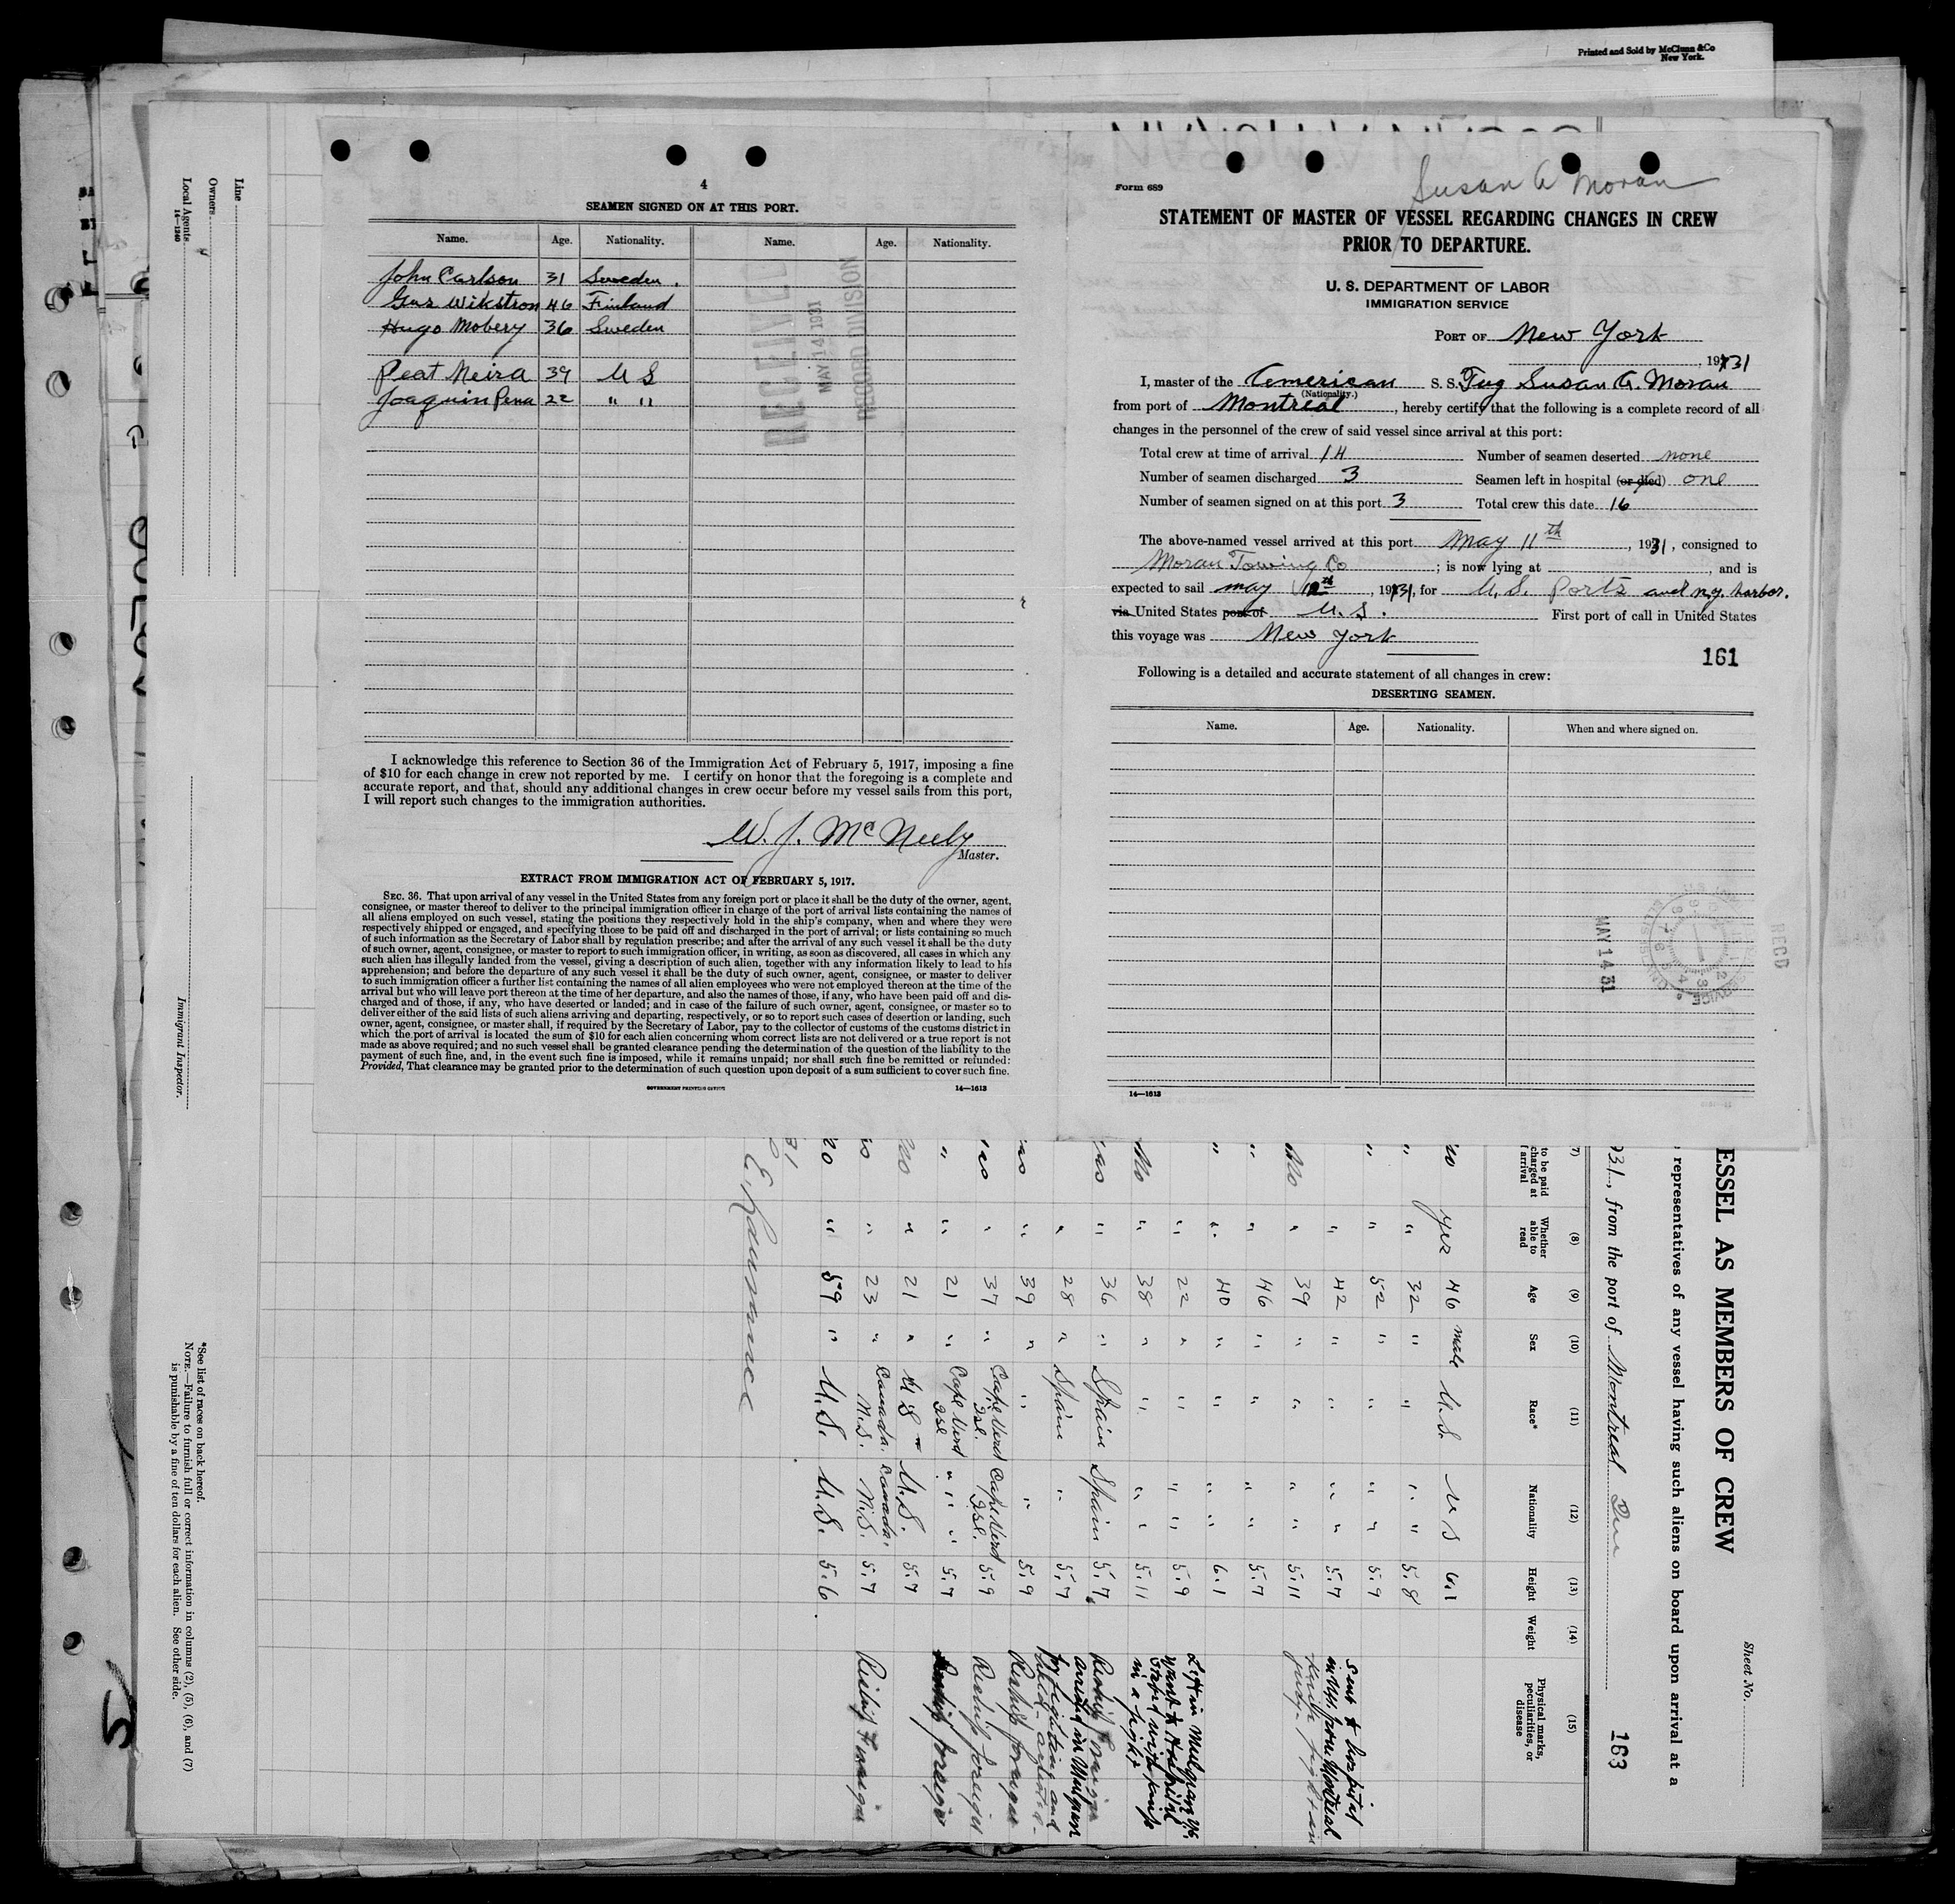 Printed and Sold by McClunn & Co
New York.
4
SEAMEN SIGNED ON AT THIS PORT.
Name. Age. Nationality. Name. Age. Nationality.
John Carlson 31 Sweden.
Gus Wikstron 46 Finland
Hugo Mobery 36 Sweden
Peat Neira 39 U S
Joaquin Pena 22 " "
RECEIVED
MAY 14 1931
RECORD DIVISION
I acknowledge this reference to Section 36 of the Immigration Act of February 5, 1917, imposing a fine
of $10 for each change in crew not reported by me. I certify on honor that the foregoing is a complete and
accurate report, and that, should any additional changes in crew occur before my vessel sails from this port,
I will report such changes to the immigration authorities.
W. J. McNeely
Master.
EXTRACT FROM IMMIGRATION ACT OF FEBRUARY 5, 1917.
SEC. 36. That upon arrival of any vessel in the United States from any foreign port or place it shall be the duty of the owner, agent,
consignee, or master thereof to deliver to the principal immigration officer in charge of the port of arrival lists containing the names of
all aliens employed on such vessel, stating the positions they respectively hold in the ship's company, when and where they were
respectively shipped or engaged, and specifying those to be paid off and discharged in the port of arrival; or lists containing so much
of such information as the Secretary of Labor shall by regulation prescribe; and after the arrival of any such vessel it shall be the duty
of such owner, agent, consignee, or master to report to such immigration officer, in writing, as soon as discovered, all cases in which any
such alien has illegally landed from the vessel, giving a description of such alien, together with any information likely to lead to his
apprehension; and before the departure of any such vessel it shall be the duty of such owner, agent, consignee, or master to deliver
to such immigration officer a further list containing the names of all alien employees who were not employed thereon at the time of the
arrival but who will leave port thereon at the time of her departure, and also the names of those, if any, who have been paid off and dis-
charged and of those, if any, who have deserted or landed; and in case of the failure of such owner, agent, consignee, or master so to
deliver either of the said lists of such aliens arriving and departing, respectively, or so to report such cases of desertion or landing, such
owner, agent, consignee, or master shall, if required by the Secretary of Labor, pay to the collector of customs of the customs district in
which the port of arrival is located the sum of $10 for each alien concerning whom correct lists are not delivered or a true report is not
made as above required; and no such vessel shall be granted clearance pending the determination of the question of the liability to the
payment of such fine, and, in the event such fine is imposed, while it remains unpaid; nor shall such fine be remitted or refunded:
Provided, That clearance may be granted prior to the determination of such question upon deposit of a sum sufficient to cover such fine.
GOVERNMENT PRINTING OFFICE 14—1613
Susan A Moran
Form 689
STATEMENT OF MASTER OF VESSEL REGARDING CHANGES IN CREW
PRIOR TO DEPARTURE.
U. S. DEPARTMENT OF LABOR
IMMIGRATION SERVICE
PORT OF New York
, 1931
I, master of the American S. S. Tug Susan A. Moran
(Nationality.)
from port of Montreal, hereby certify that the following is a complete record of all
changes in the personnel of the crew of said vessel since arrival at this port:
Total crew at time of arrival 14 Number of seamen deserted none
Number of seamen discharged 3 Seamen left in hospital (or died) one
Number of seamen signed on at this port 3 Total crew this date 16
The above-named vessel arrived at this port May 11th, 1931, consigned to
Moran Towing Co; is now lying at , and is
expected to sail may 12th, 1931, for U. S. Ports and n.y. harbor.
via United States port of U. S. First port of call in United States
this voyage was New York
161
Following is a detailed and accurate statement of all changes in crew:
DESERTING SEAMEN.
Name. Age. Nationality. When and where signed on.
MAY 14 31
RECD
14—1613
ESSEL AS MEMBERS OF CREW
Sheet No.
representatives of any vessel having such aliens on board upon arrival at a
931, from the port of Montreal Que
163
(7) (8) (9) (10) (11) (12) (13) (14) (15)
to be paid charged at arrival Whether able to read Age Sex Race* Nationality Height Weight Physical marks, peculiarities, or disease
no yes 46 male U.S. U S 6.1
" " 32 " " " " 5.8
" " 52 " " " " 5.9
" 42 " " " " 5.7 Sent to hospital
No " 39 " " " " 5.11
" " 46 " " " 5.7
" " 40 " " " " 6.1
" 22 " " " " 5.9
No " 38 " " " " 5.11
no " 36 " Spain Spain 5.7 Reship Foreign
" 28 " Spain " 5.7
no " 39 " " " 5.9 Reship foreign
no " 37 " Cape Verd Isl. Cape Verd Isl. 5.9 Reship foreign
" " 21 " Cape Verd Isl " " " 5.7 Reship foreign
no " 21 " U S U.S. 5.7
no " 23 " Canada. N.S. Canada. N.S. 5.7 Reship Foreign
no " 59 " U.S. U.S. 5.6.
Line
Owners
Local Agents
14—1240
Immigrant Inspector.
*See list of races on back hereof.
NOTE.—Failure to furnish full or correct information in columns (2), (5), (6), and (7)
is punishable by a fine of ten dollars for each alien. See other side.
5